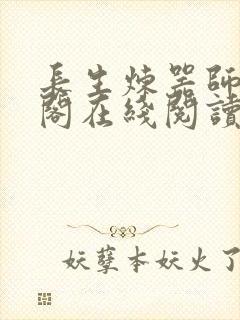 長生煉器師
閣在綫閱讀
妖孽本妖火了